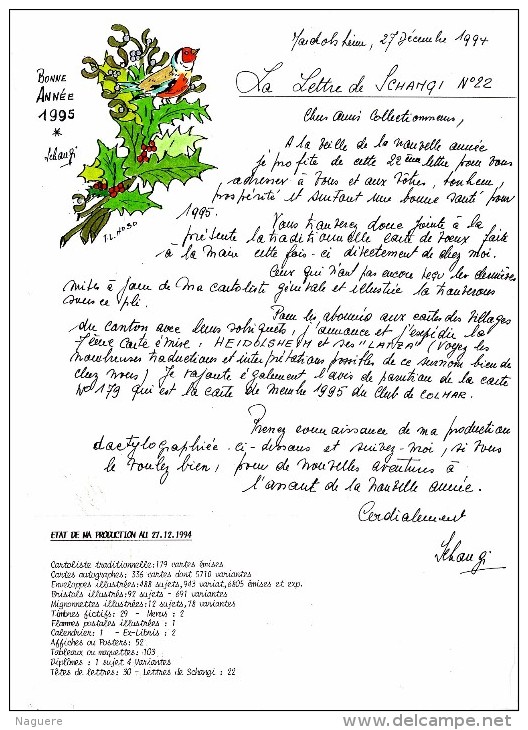 BONNE
ANNÉE
1995
*
Schangi
Mackolsheim, 27 Décembre 1994
La Lettre de SCHANGI N°22
Chers amis Collectionneurs,
A la veille de la nouvelle année
je profite de cette 22ème lettre pour vous
adresser à Vous et aux Vôtres, bonheur,
prospérité et surtout une bonne santé pour
1995.
Vous trouverez donc jointe à la
présente la traditionnelle carte de voeux faite
à la main cette fois-ci directement de chez moi.
Ceux qui n'ont pas encore reçu les dernières
mises à jour de ma cartoliste générale et illustrée la trouverons
sous ce pli.
Pour les abonnés aux cartes des villages
du canton avec leurs sobriquets: j'annonce et j'expédie la
7ème carte émise: HEIDOLSHEIM et ses "LATZA" (voyez les
nombreuses traductions et interprétations possibles de ce surnom bien de
chez nous) Je rajoute également l'avis de parution de la carte
N° 179 qui est la carte de membre 1995 du Club de COLMAR.
Prenez connaissance de ma production
dactylographiée ci-dessous et suivez-moi, si vous
le voulez bien, pour de nouvelles aventures à
l'assaut de la nouvelle année.
Cordialement
Schangi
ETAT DE MA PRODUCTION AU 27.12.1994
Cartoliste traditionnelle:179 cartes émises
Cartes autographes: 336 cartes dont 5710 variantes
Enveloppes illustrées:488 sujets,943 variat,6805 émises et exp.
Bristols illustrés:92 sujets - 691 variantes
Mignonnettes illustrées:12 sujets,78 variantes
Timbres fictifs: 29 - Menus : 2
Flammes postales illustrées : 1
Calendrier: 1 - Ex-Libris : 2
Affiches ou Posters: 52
Tableaux ou maquettes: 103
Diplômes : 1 sujet 4 Variantes
Têtes de lettres: 30 - Lettres de Schangi : 22
Naguere
www.delcampe.net